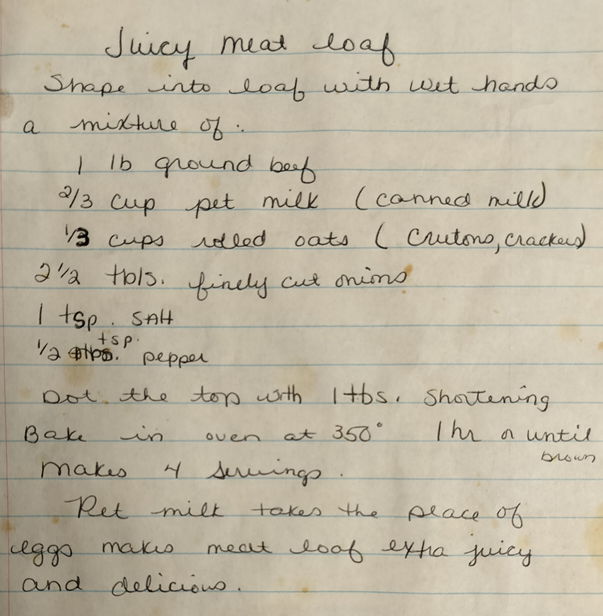 Juicy meat loaf
Shape into loaf with wet hands
a mixture of:
1 lb ground beef
2/3 cup pet milk (canned milk)
1/3 cups rolled oats (Crutons, crackers)
2 1/2 tbls. finely cut onions
1 tsp. SAlt
tsp.
1/2 pepper
Dot the top with 1 tbs. Shortening
Bake in oven at 350° 1 hr or until
brown
Makes 4 servings.
Pet milk takes the place of
eggs makes meat loaf extra juicy
and delicious.